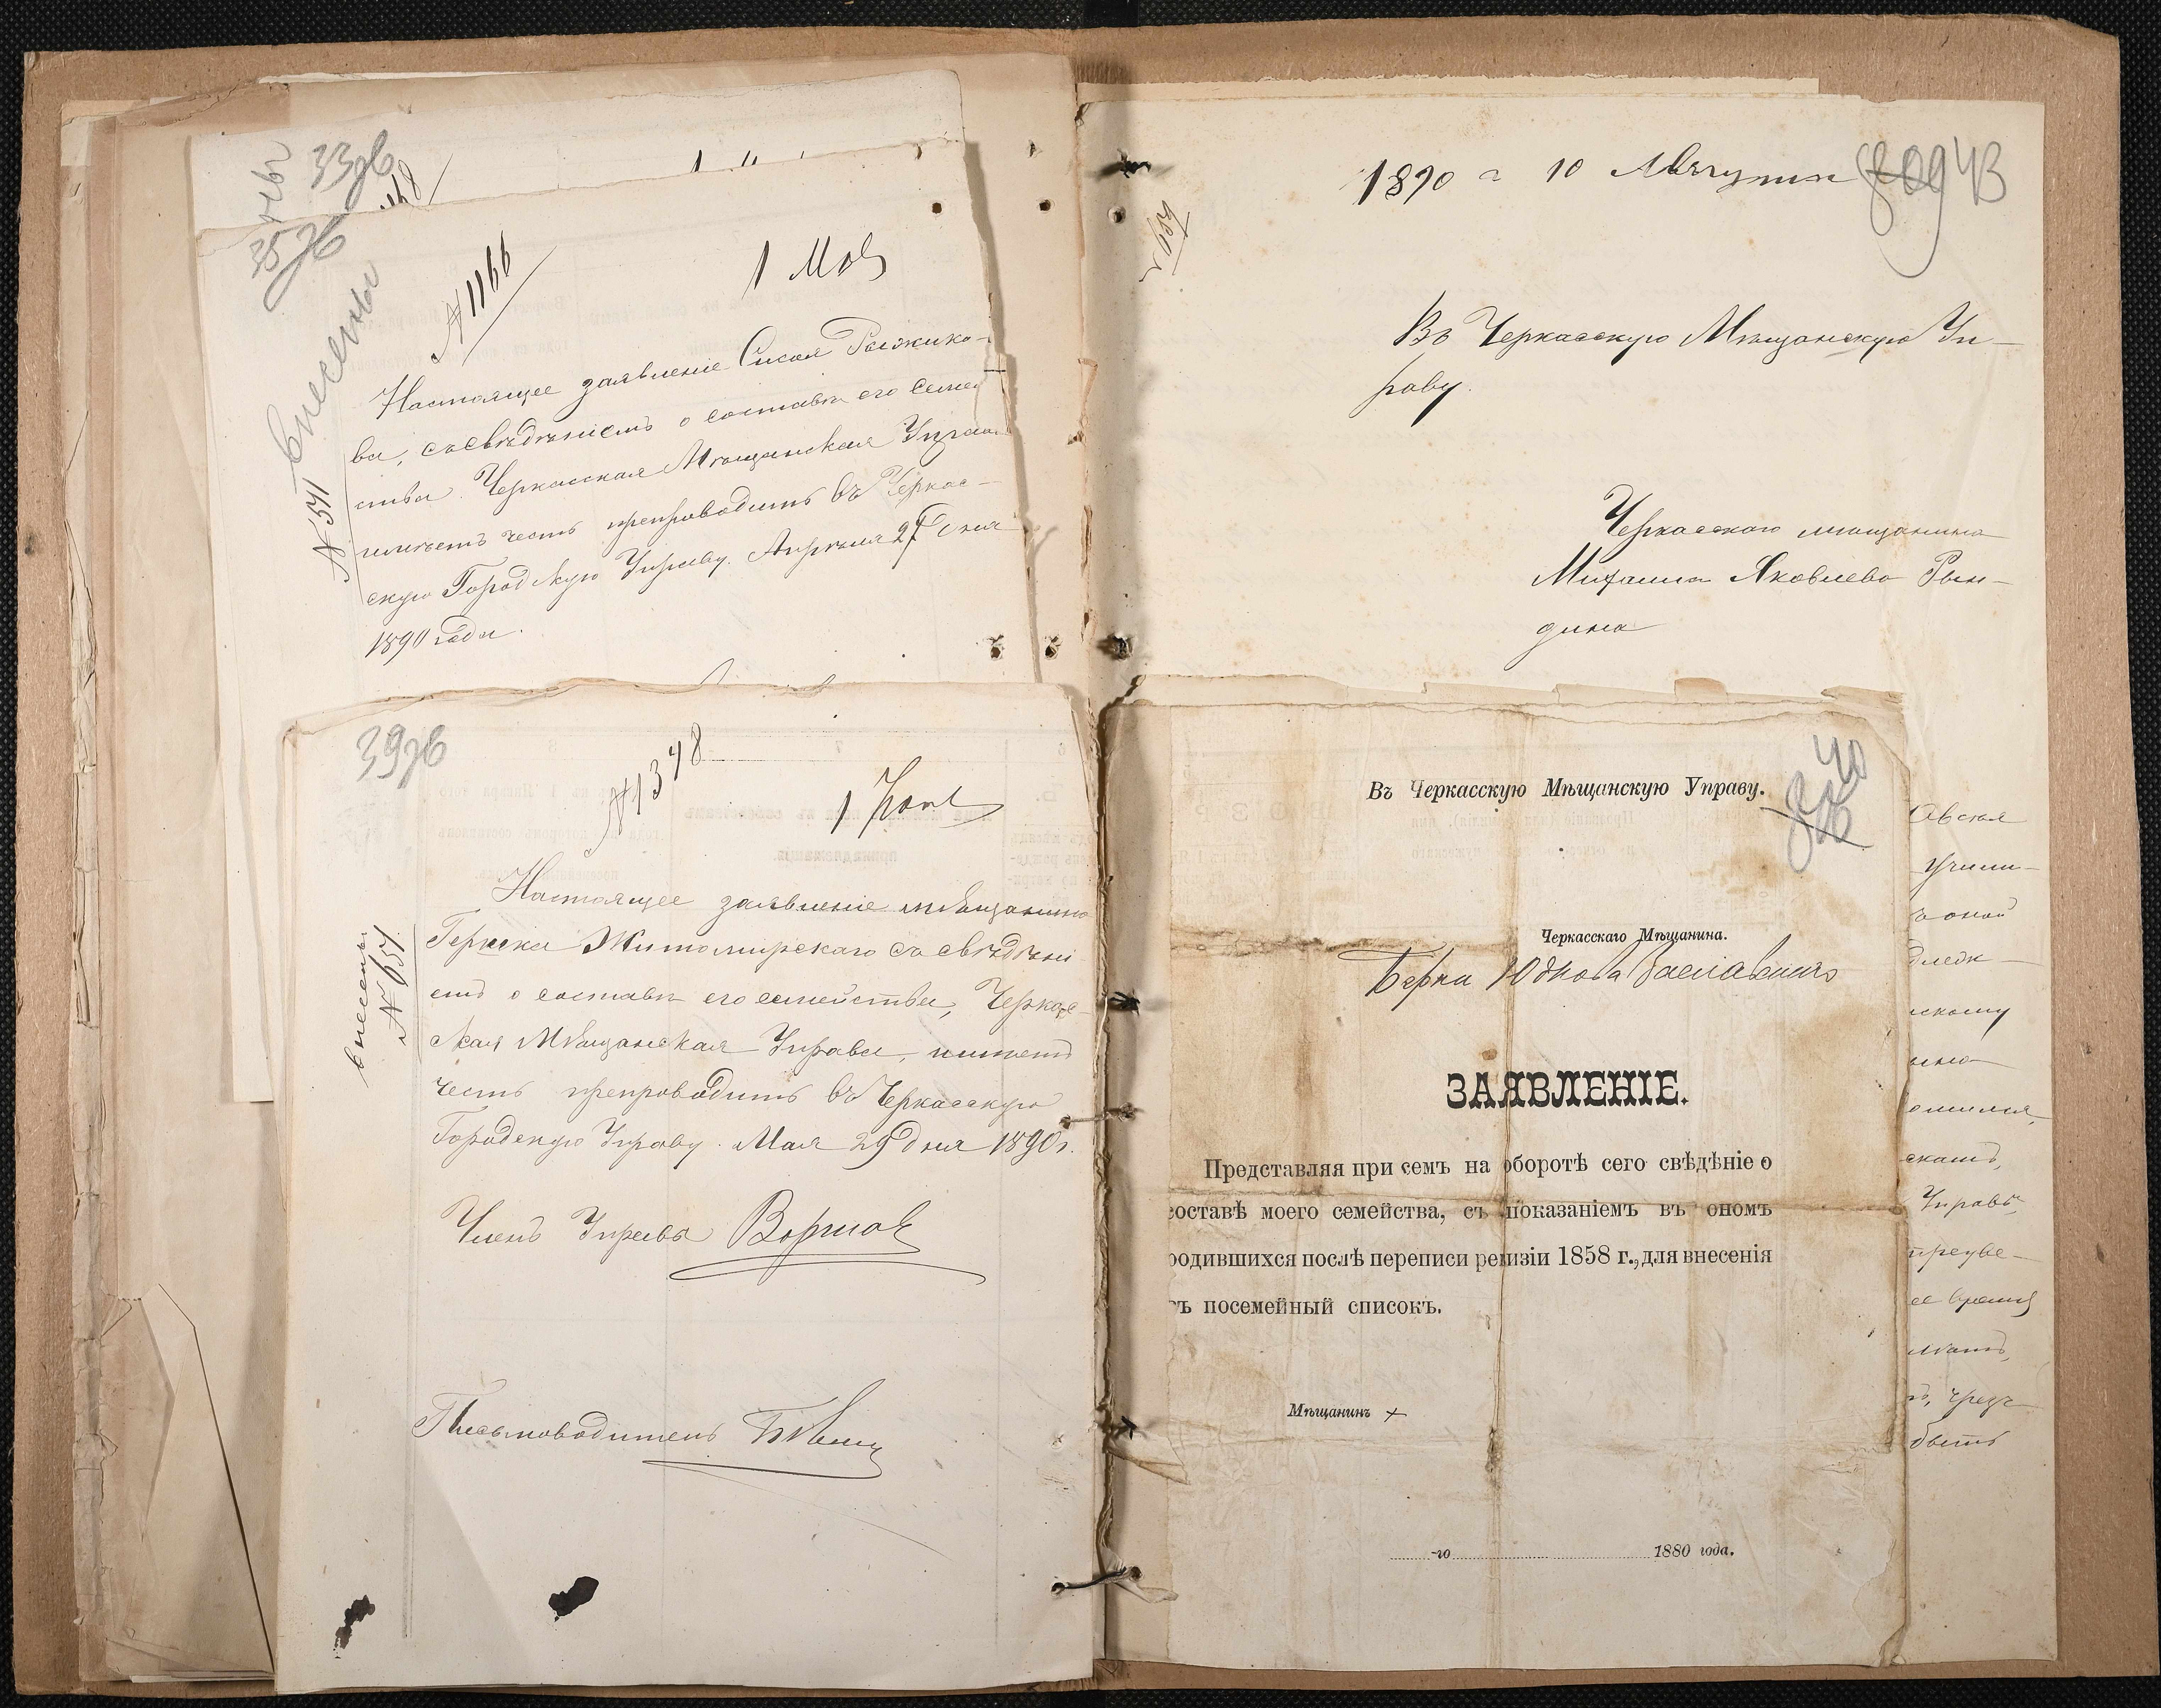 33об
35об
внесены
№ 1166
1 Мая
№ 541
Настоящее заявленіе Сисоя Рыжико-
ва, съ свѣдѣніемъ о составѣ его семей
ства Черкасская Мѣщанская Управа
имѣетъ честь препроводить въ Черкас-
скую Городскую Управу. Апрѣля 27 дня
1890 года.
39об
№ 1348
1
внесены
№ 651
Настоящее заявленіе мѣщанина
Житомирскаго съ свѣдѣні
емъ о составѣ его семейства, Черкас-
ская Мѣщанская Управа, имѣетъ
честь препроводить въ Черкасскую
Городскую Управу. Мая 29 дня 1890 г.
Членъ Управы
Письмоводитель
1890 г 10 Августа
43
Въ Черкасскую Мѣщанскую Уп-
раву.
Черкасскаго мѣщанина
Михаила Яковлева Рын-
дина
40
Въ Черкасскую Мѣщанскую Управу.
Черкасскаго Мѣщанина.
Берки Юдкова Заславскаго
ЗАЯВЛЕНІЕ.
Представляя при семъ на оборотѣ сего свѣдѣніе о
составѣ моего семейства, съ показаніемъ въ ономъ
родившихся послѣ переписи ревизіи 1858 г., для внесенія
въ посемейный списокъ.
Мѣщанинъ +
-го 1880 года.
авская
учили-
скому
Управѣ,
ее время
чрезъ
быть